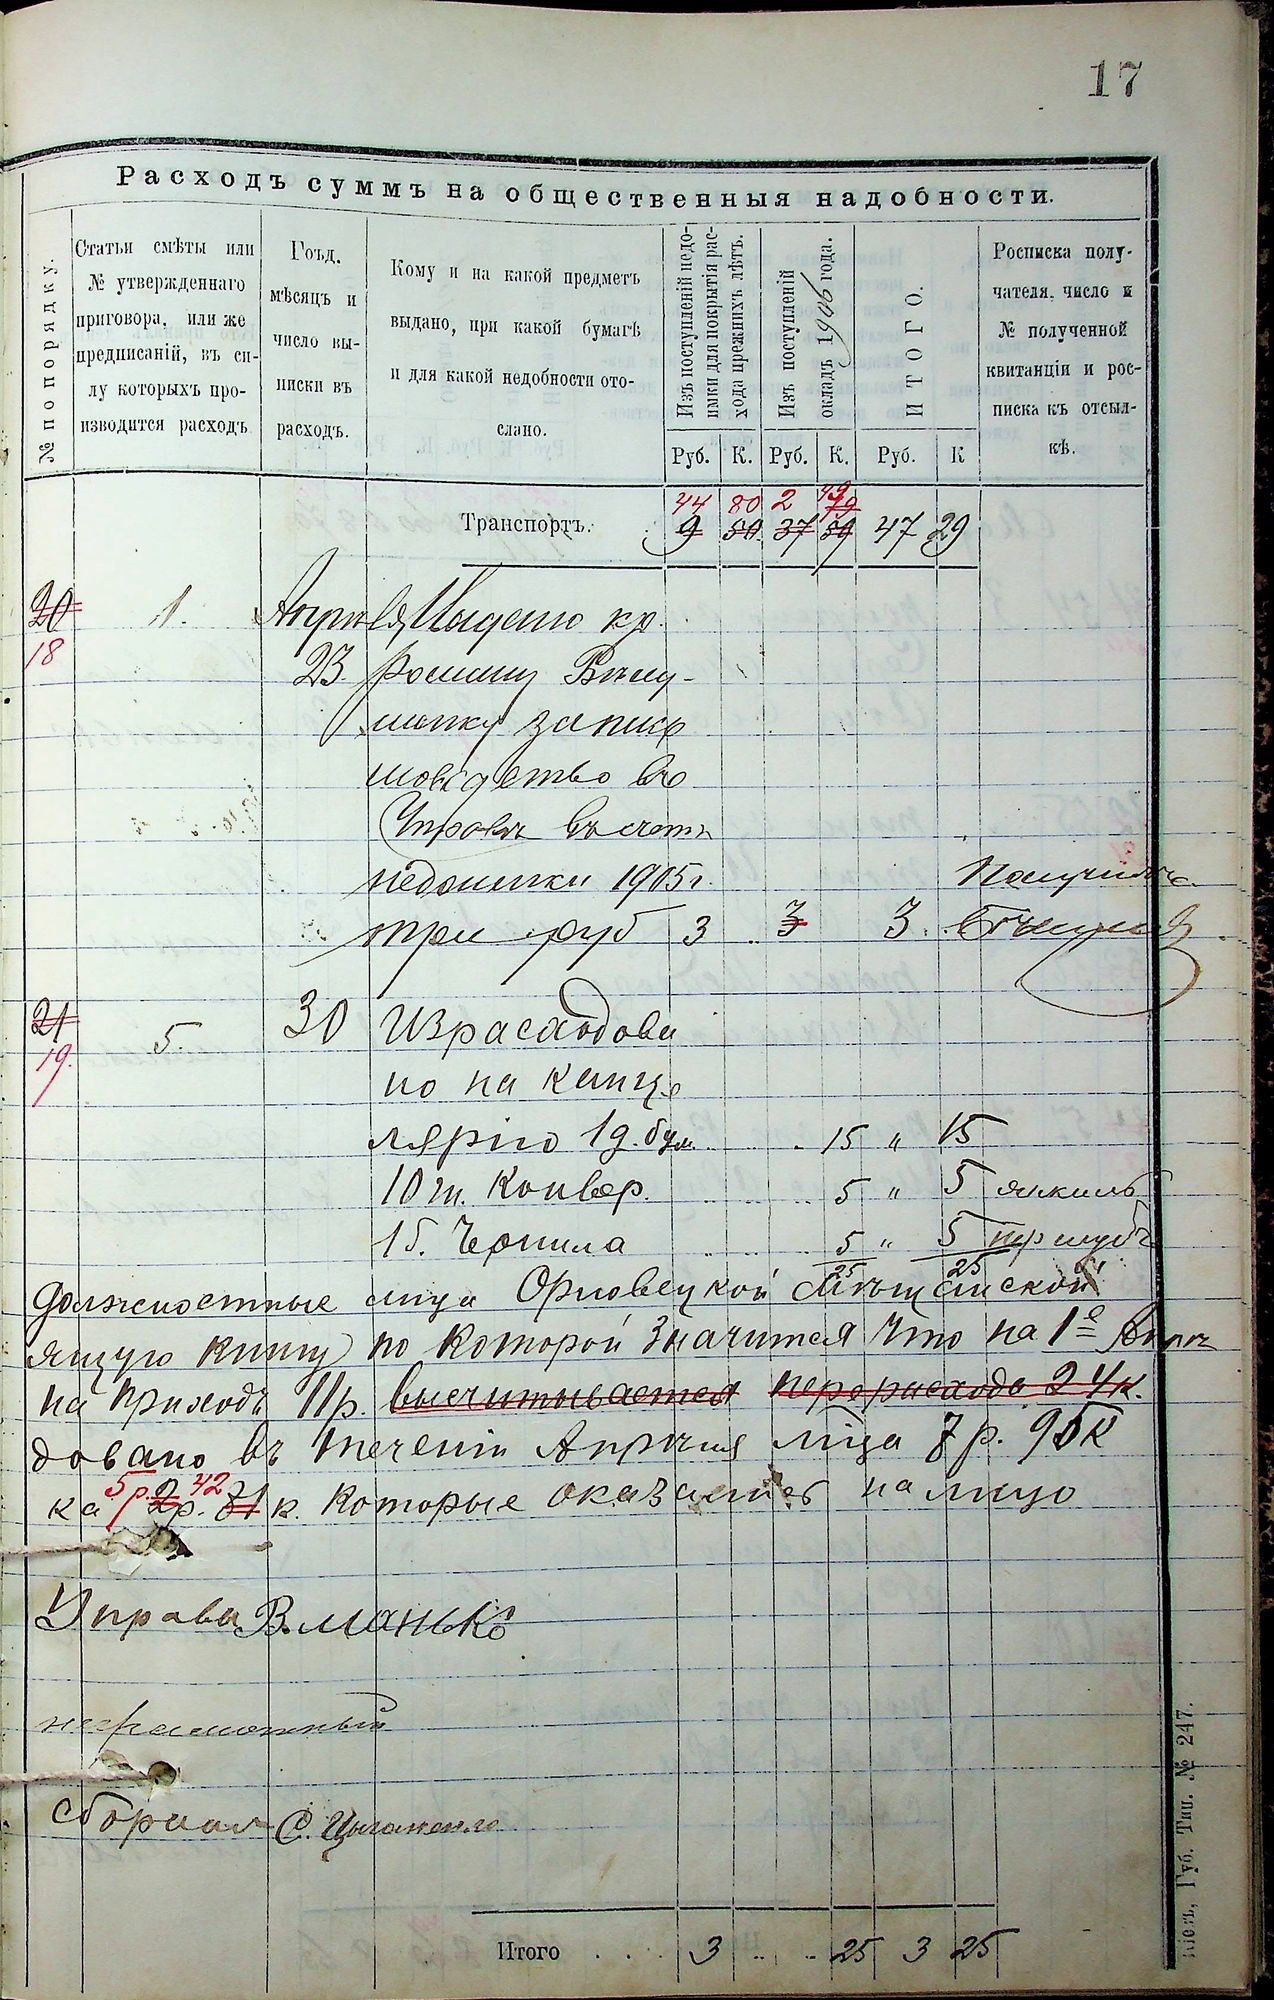 17
Расходъ суммъ на общественныя надобности.
№ по порядку.
Статьи смѣты или
№ утвержденнаго
приговора, или же
предписаній, въ си-
лу которыхъ про-
изводится расходъ.
Гоъд,
мѣсяцъ и
число вы-
писки въ
расходъ.
Кому и на какой предметъ
выдано, при какой бумагѣ
и для какой недобности ото-
слано.
Изъ поступленій недо-
имки для покрытія рас-
хода прежнихъ лѣтъ.
Изъ поступленій
окладъ 1906 года.
ИТОГО.
Росписка полу-
чателя, число и
№ полученной
квитанціи и рос-
писка къ отсыл-
кѣ.
Руб. К. Руб. К. Руб. К
44 80 2 49
Транспортъ. 9 50 37 59 47 29
20 1. Апрѣля Выдано кр.
18
23.
запись
во
Управѣ въ счетъ
недоимки 1905 г. Получилъ
три руб 3 3 3
21 5. 30 Израсходова
19.
но на канце
лярію 1 д. бум. 15 „ 15
10 ш. Конвер. 5 „ 5
1 б. Чернила 5 „ 5
25 25
Должностные лица Орловецкой Мѣщанской
ящую книгу по которой значится что на 1е
на приходъ 11 р. высчитывается перерасходъ 24 к.
довано въ теченіи Апрѣля м-ца 7 р. 95 к
5 р. 42
ка 2 р. 71 к. которые оказались на лицо
Управы В. Манько
неграмотный
С. Цыганенко
Итого 3 25 3 25
Губ. Тип. № 247.